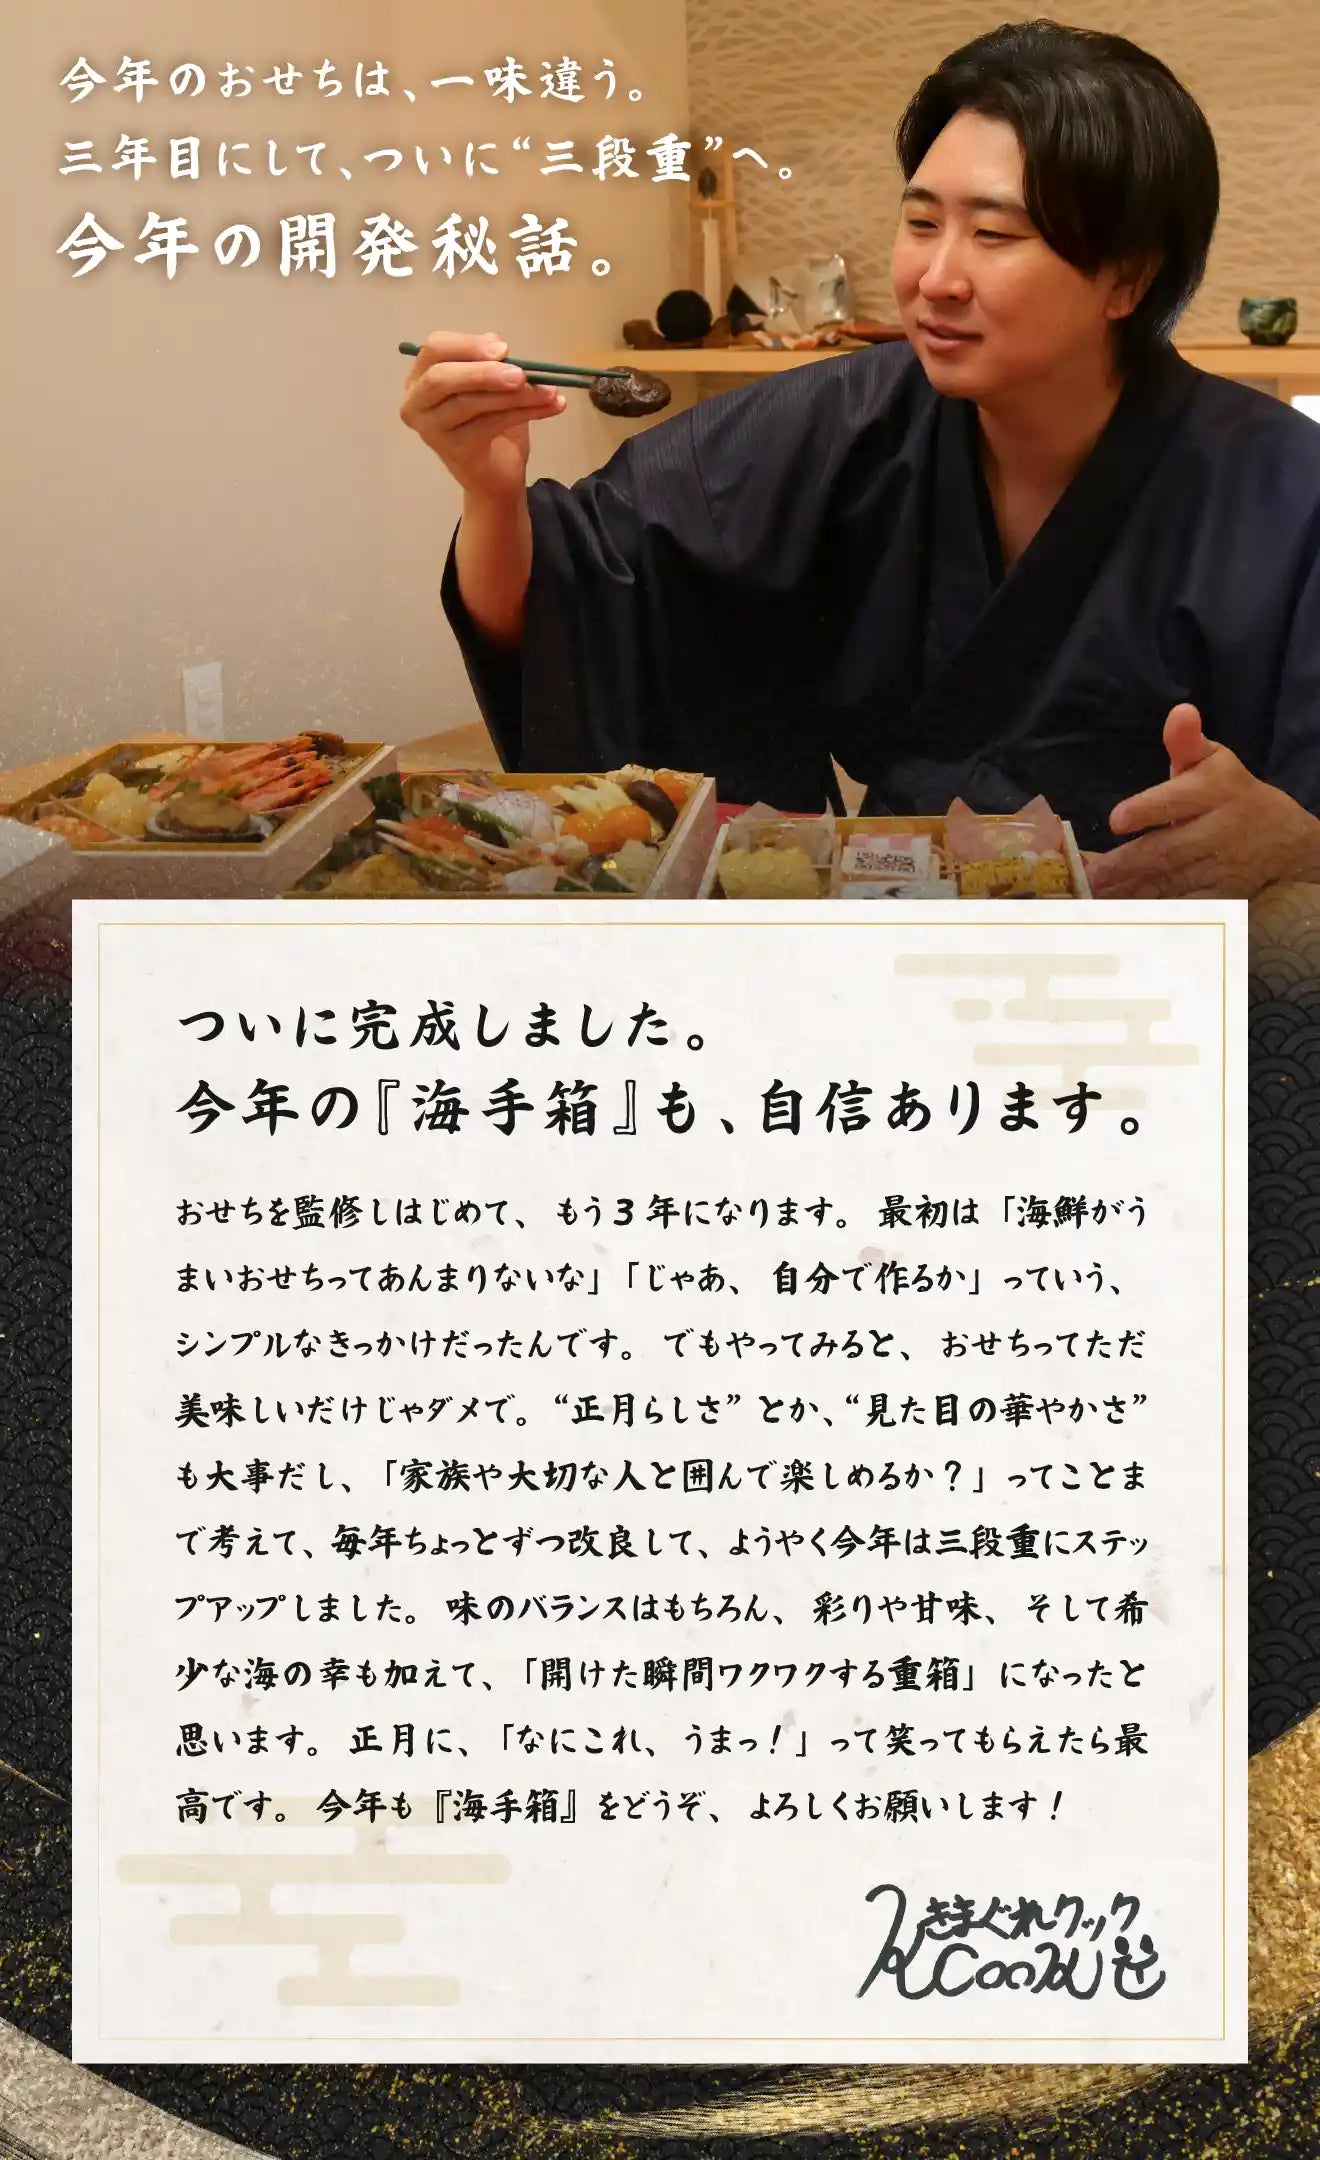 今年のおせちは、一味違う。
三年目にして、ついに“三段重”へ。
今年の開発秘話。
ついに完成しました。
今年の『海手箱』も、自信あります。
おせちを監修しはじめて、もう3年になります。最初は「海鮮がう
まいおせちってあんまりないな」「じゃあ、自分で作るか」っていう、
シンプルなきっかけだったんです。でもやってみると、おせちってただ
美味しいだけじゃダメで。“正月らしさ”とか、“見た目の華やかさ”
も大事だし、「家族や大切な人と囲んで楽しめるか？」ってことま
で考えて、毎年ちょっとずつ改良して、ようやく今年は三段重にステッ
プアップしました。味のバランスはもちろん、彩りや甘味、そして希
少な海の幸も加えて、「開けた瞬間ワクワクする重箱」になったと
思います。正月に、「なにこれ、うまっ！」って笑ってもらえたら最
高です。今年も『海手箱』をどうぞ、よろしくお願いします！
きまぐれクック